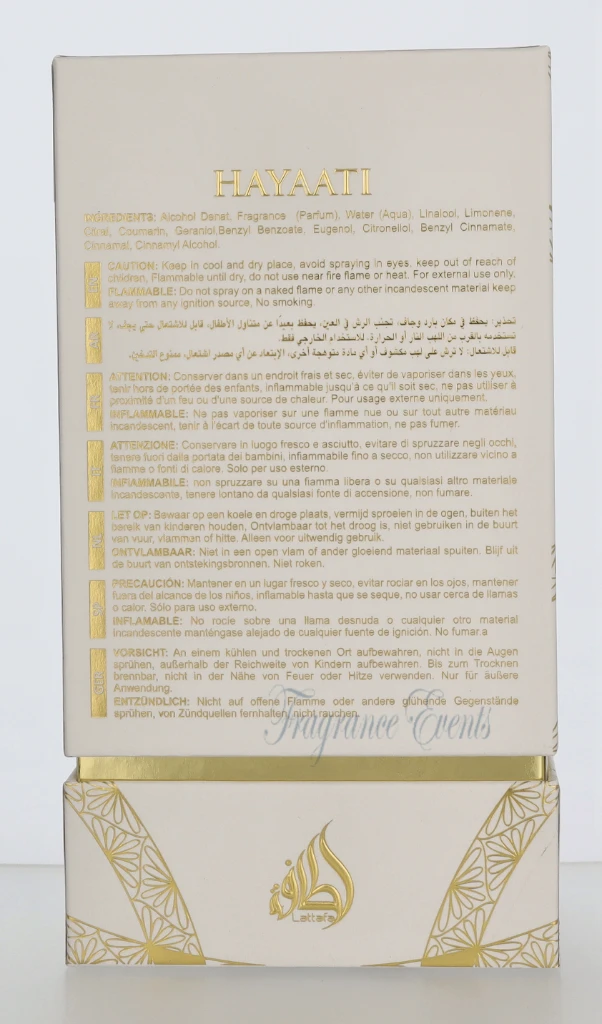 HAYAATI
INGREDIENTS: Alcohol Denat, Fragrance (Parfum), Water (Aqua), Linalool, Limonene,
Citral, Coumarin, Geraniol,Benzyl Benzoate, Eugenol, Citronellol, Benzyl Cinnamate,
Cinnamal, Cinnamyl Alcohol.
CAUTION: Keep in cool and dry place, avoid spraying in eyes, keep out of reach of
children, Flammable until dry, do not use near fire flame or heat. For external use only.
FLAMMABLE: Do not spray on a naked flame or any other incandescent material keep
away from any ignition source, No smoking.
تحذير: يحفظ في مكان بارد وجاف، تجنب الرش في العين، يحفظ بعيداً عن متناول الأطفال، قابل للاشتعال حتى يجف، لا
تستخدمه بالقرب من اللهب النار أو الحرارة. للاستخدام الخارجي فقط.
قابل للاشتعال: لا ترش على لهب مكشوف أو أي مادة متوهجة أخرى، الإبتعاد عن أي مصدر اشتعال، ممنوع التدخين.
ATTENTION: Conserver dans un endroit frais et sec, éviter de vaporiser dans les yeux,
tenir hors de portée des enfants, inflammable jusqu'à ce qu'il soit sec, ne pas utiliser à
proximité d'un feu ou d'une source de chaleur. Pour usage externe uniquement.
INFLAMMABLE: Ne pas vaporiser sur une flamme nue ou sur tout autre matériau
incandescent, tenir à l'écart de toute source d'inflammation, ne pas fumer.
ATTENZIONE: Conservare in luogo fresco e asciutto, evitare di spruzzare negli occhi,
tenere fuori dalla portata dei bambini, infiammabile fino a secco, non utilizzare vicino a
fiamme o fonti di calore. Solo per uso esterno.
INFIAMMABILE: non spruzzare su una fiamma libera o su qualsiasi altro materiale
incandescente, tenere lontano da qualsiasi fonte di accensione, non fumare.
LET OP: Bewaar op een koele en droge plaats, vermijd sproeien in de ogen, buiten het
bereik van kinderen houden, Ontvlambaar tot het droog is, niet gebruiken in de buurt
van vuur, vlammen of hitte. Alleen voor uitwendig gebruik.
ONTVLAMBAAR: Niet in een open vlam of ander gloeiend materiaal spuiten. Blijf uit
de buurt van ontstekingsbronnen. Niet roken.
PRECAUCIÓN: Mantener en un lugar fresco y seco, evitar rociar en los ojos, mantener
fuera del alcance de los niños, inflamable hasta que se seque, no usar cerca de llamas
o calor. Sólo para uso externo.
INFLAMABLE: No rocíe sobre una llama desnuda o cualquier otro material
incandescente manténgase alejado de cualquier fuente de ignición. No fumar.a
VORSICHT: An einem kühlen und trockenen Ort aufbewahren, nicht in die Augen
sprühen, außerhalb der Reichweite von Kindern aufbewahren. Bis zum Trocknen
brennbar, nicht in der Nähe von Feuer oder Hitze verwenden. Nur für äußere
Anwendung.
ENTZÜNDLICH: Nicht auf offene Flamme oder andere glühende Gegenstände
sprühen, von Zündquellen fernhalten, nicht rauchen.
Fragrance Events
لطافة
Lattafa